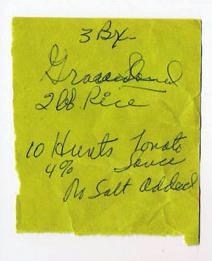 3 Bx
2 lb Rice
10 Hunts Tomato
4% Sauce
No Salt Added